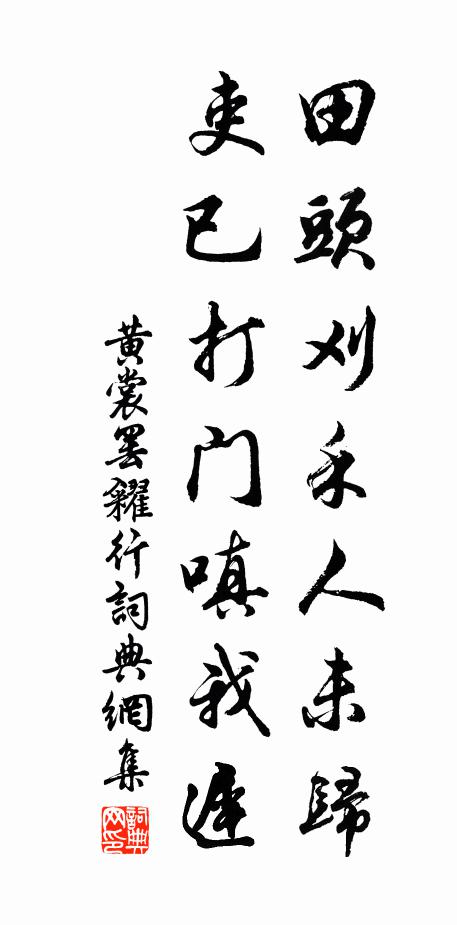 田頭刈禾人未歸
吏已打门嗔我遲
黄裳罢糴行詞典網集
詞典网印